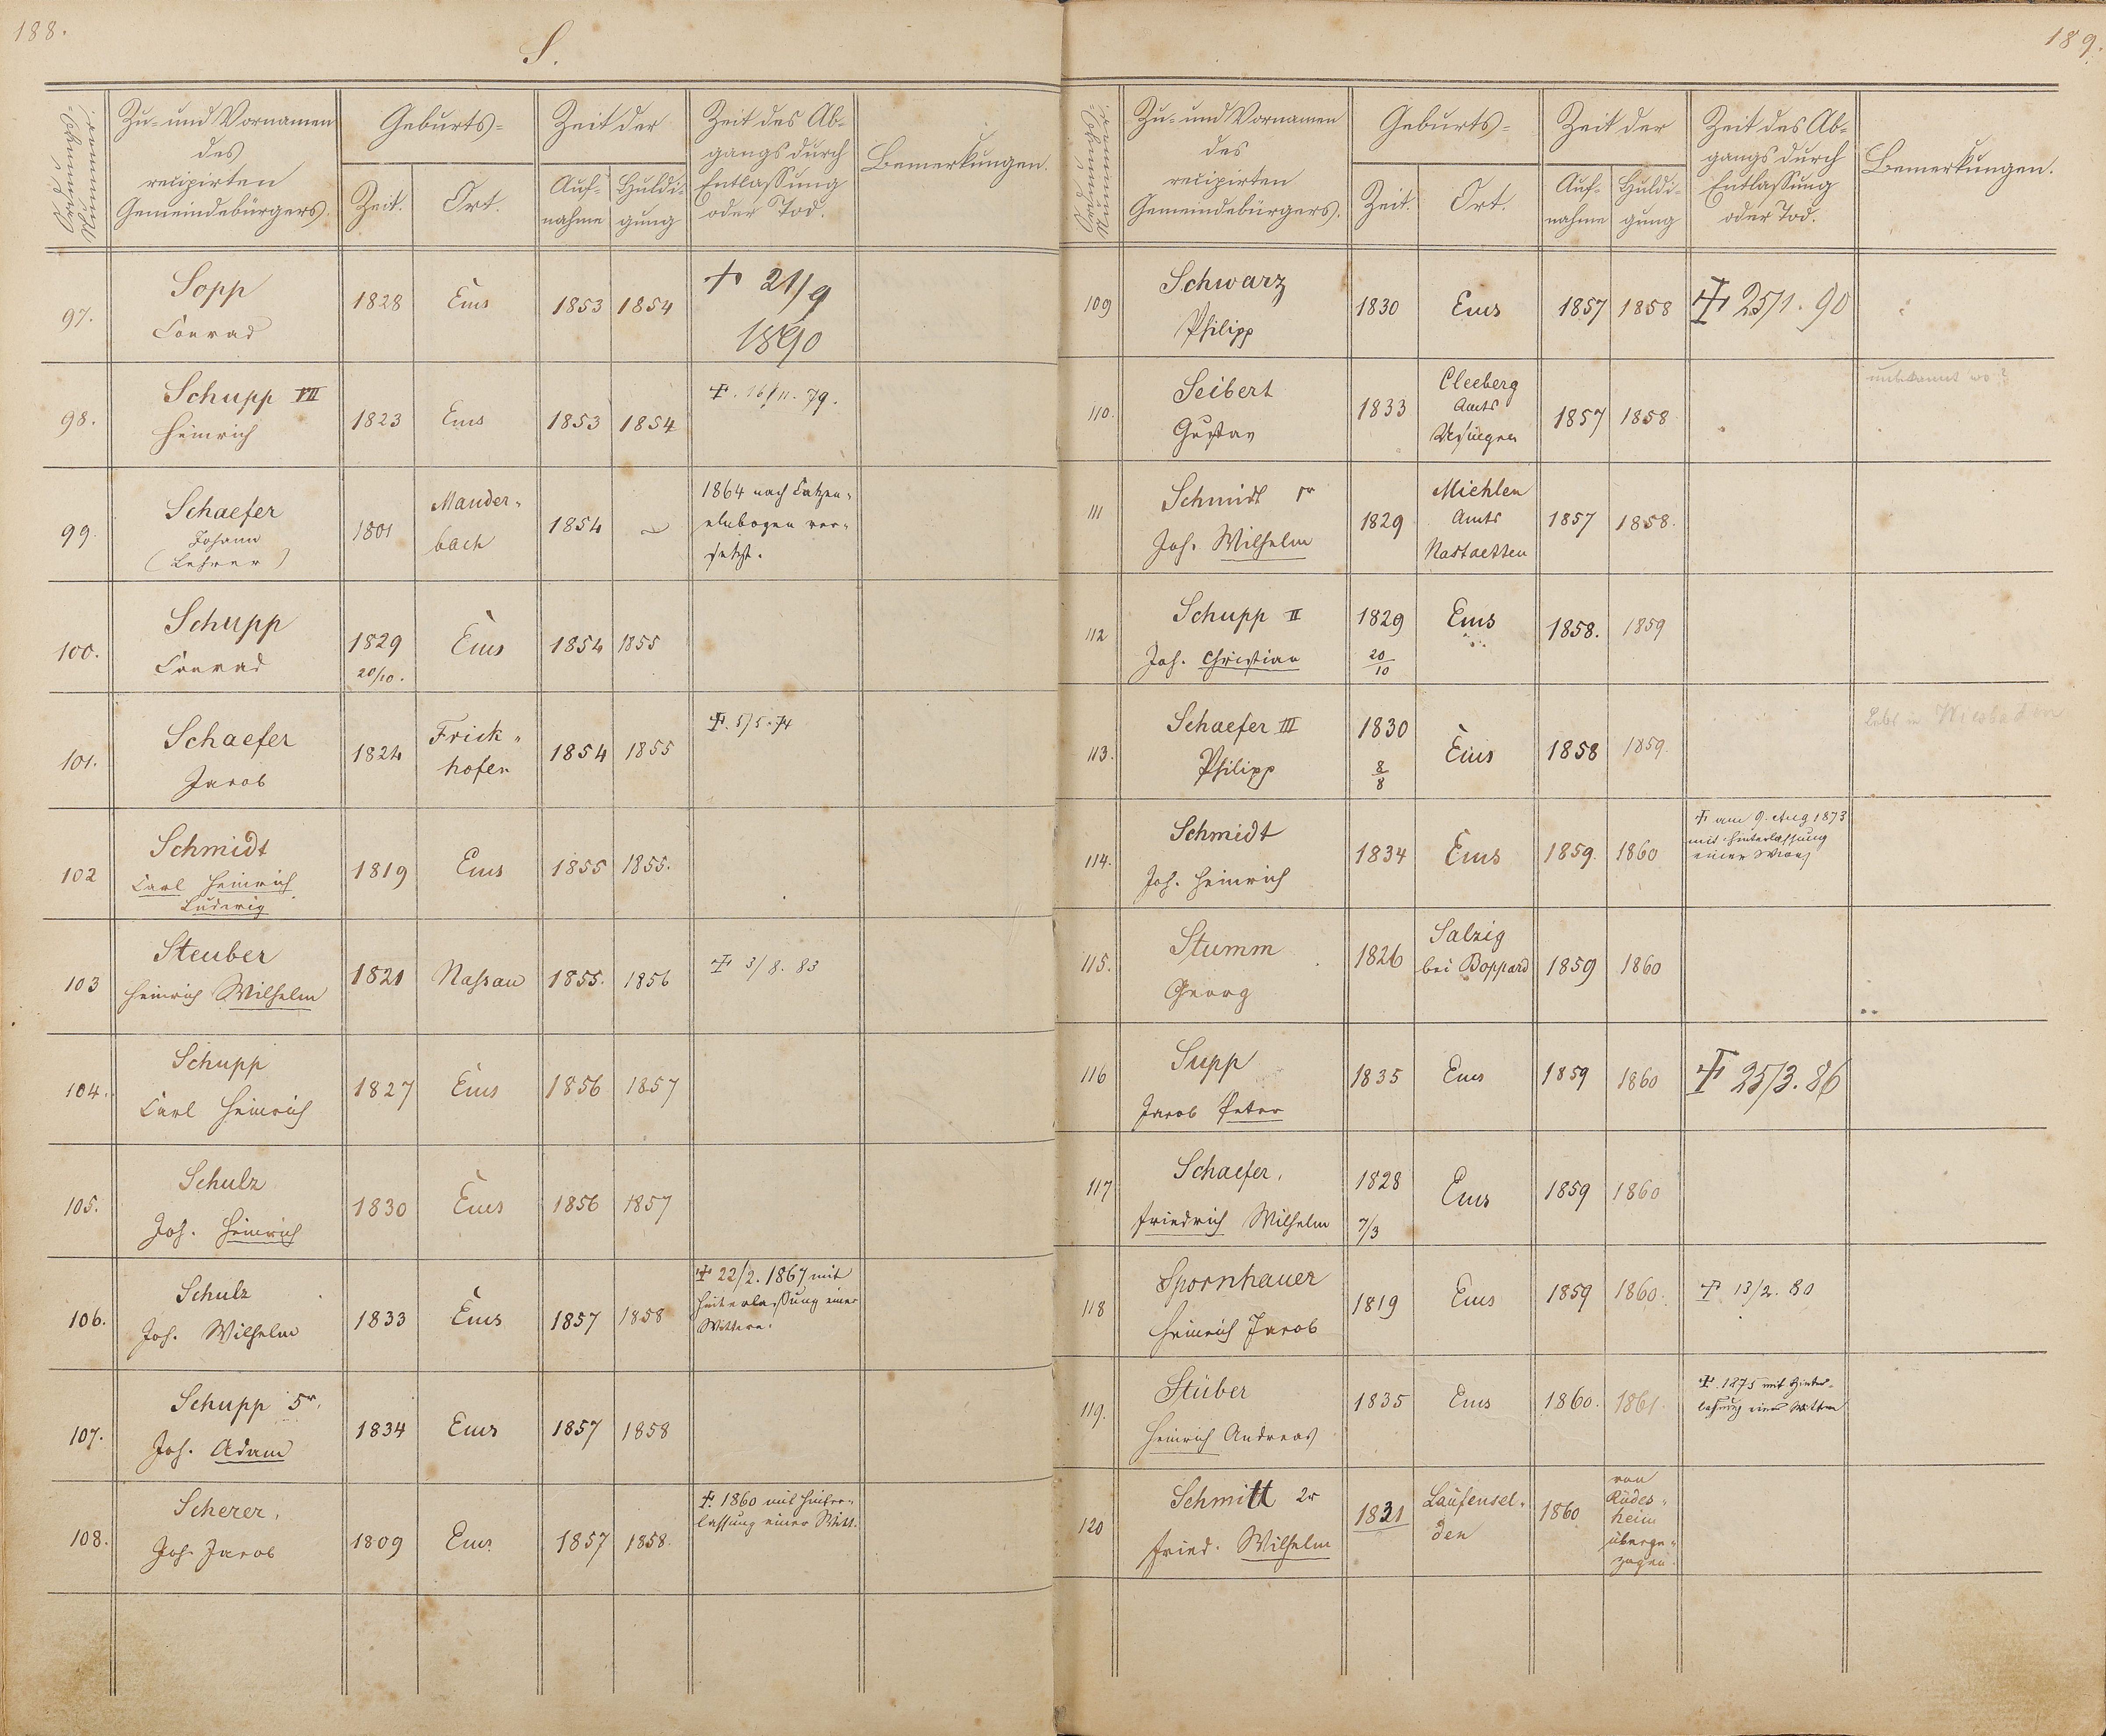 188.
S.
Ordnungs-
Nummer.
Zu- und Vornamen
des
recipirten
Gemeindebürgers.
Geburts-
Zeit.
Ort.
Zeit der
Auf-
nahme
Huldi-
gung
Zeit des Ab-
gangs durch
Entlassung
oder Tod.
Bemerkungen.
97.
Sopp
Conrad
1828
Ems
1853
1854
† 21/9
1890
98.
Schupp VII
Heinrich
1823
Ems
1853
1854
†. 16/11. 79.
99.
Schaefer
Johann
(Lehrer)
1801
Mander-
bach
1854
1864 nach Catzen-
elnbogen ver-
setzt.
100.
Schupp
Conrad
1829
20/10.
Ems
1854
1855
101.
Schaefer
Jacob
1824
Frick-
hofen
1854
1855
†. 5/5. 74
102
Schmidt
Carl Heinrich
Ludwig
1819
Ems
1855
1855.
103
Steuber
Heinrich Wilhelm
1821
Nassau
1855.
1856
† 3/8. 83
104.
Schupp
Carl Heinrich
1827
Ems
1856
1857
105.
Schulz
Joh. Heinrich
1830
Ems
1856
1857
106.
Schulz
Joh. Wilhelm
1833
Ems
1857
1858
† 22/2. 1867 mit
Hinterlassung einer
Wittwe.
107.
Schupp 5r.
Joh. Adam
1834
Ems
1857
1858
108.
Scherer,
Joh. Jacob
1809
Ems
1857
1858.
†. 1860 mit Hinter-
lassung einer Witt.
189.
Ordnungs-
Nummer.
Zu- und Vornamen
des
recipirten
Gemeindebürgers.
Geburts-
Zeit.
Ort.
Zeit der
Auf-
nahme
Huldi-
gung
Zeit des Ab-
gangs durch
Entlassung
oder Tod.
Bemerkungen.
109
Schwarz
Philipp
1830
Ems
1857
1858
† 25/1. 90
110.
Seibert
Gustav
1833
Cleeberg
Amts
Usingen
1857
1858
unbekannt wo?
111
Schmidt
Joh. Wilhelm
1829
Miehlen
Amts
Nastaetten
1857
1858.
112
Schupp II
Joh. Christian
1829
20/10
Ems
1858.
1859
113.
Schaefer III
Philipp
1830
8/8
Ems
1858
1859.
Lebt in Wiesbaden
114.
Schmidt
Joh. Heinrich
1834
Ems
1859.
1860
† am 9. Aug 1873
mit Hinterlassung
einer
115.
Stumm
Georg
1826
Salzig
bei Boppard
1859
1860
116
Supp
Jacob Peter
1835
Ems
1859
1860
† 25/3. 86
117
Schaefer,
Friedrich Wilhelm
1828
7/3
Ems
1859
1860
118
Spornhauer
Heinrich Jacob
1819
Ems
1859
1860.
† 13/2. 80
119.
Stüber
Heinrich Andreas
1835
Ems
1860.
1861.
†. 1875 mit Hinter-
lassung einer Wittwe
120
Schmitt 2r
Fried. Wilhelm
1831
Laufensel-
den
1860
von
Rüdes-
heim
überge-
zogen.